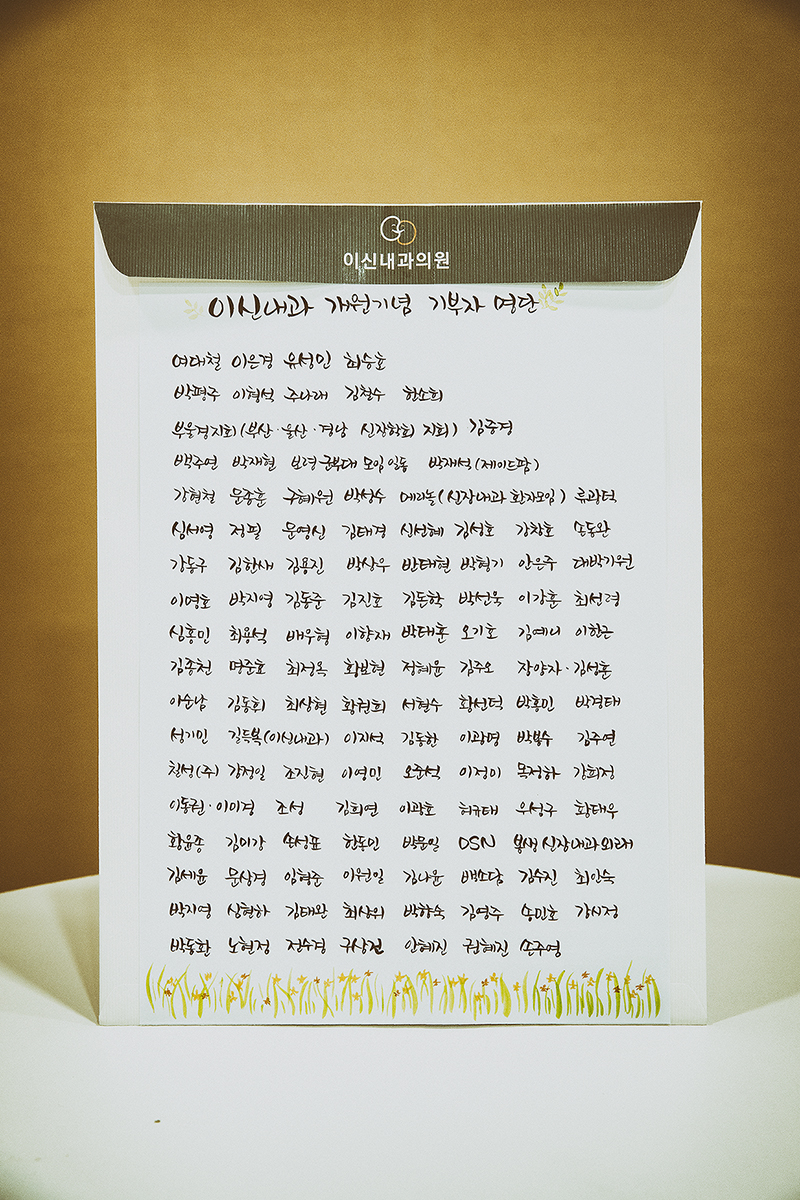 이신내과의원
이신내과 개원기념 기부자 명단
여대철 이은경 유성민 최승호
박평주 이형석 주나래 김철수 한소희
부울경지회(부산·울산·경남 신장학회 지회) 김중경
백주연 박재현 보령 군부대 모임 일동 박재석(제이드팜)
강현철 문종훈 구혜원 박성수 메리놀(신장내과 환자모임) 류광덕
심서영 정필 문영신 김태경 신선혜 김성호 강창호 손동완
강동구 김한새 김용진 박상우 반태현 박형기 안은주 대박기원
이영호 박지영 김동준 김진호 김돈학 박선욱 이강훈 최선령
심홍민 최용석 배우형 이향재 박태훈 오기호 김예니 이한근
김종천 명준호 최정옥 황보현 정혜윤 김주오 장양자·김성훈
이순남 김동휘 최상현 황권희 서현수 황선덕 박홍민 박경태
석기민 길득복(이신내과) 이지석 김동한 이광명 박봉수 김주연
칠성(주) 강정일 조진현 이영민 오준석 이정미 목정하 강희정
이동린·이미경 조성 김희연 이광호 허규태 우성구 황태우
황윤종 김미강 손성표 한동민 박문일 DSN 봉생 신장내과 외래
김세윤 문상경 임형준 이원일 김나윤 배소담 김수진 최인숙
박지영 심현하 김태완 최상위 박향숙 김영주 송민호 강시정
박동환 노현정 전수경 구상건 안혜진 권혜진 손주영